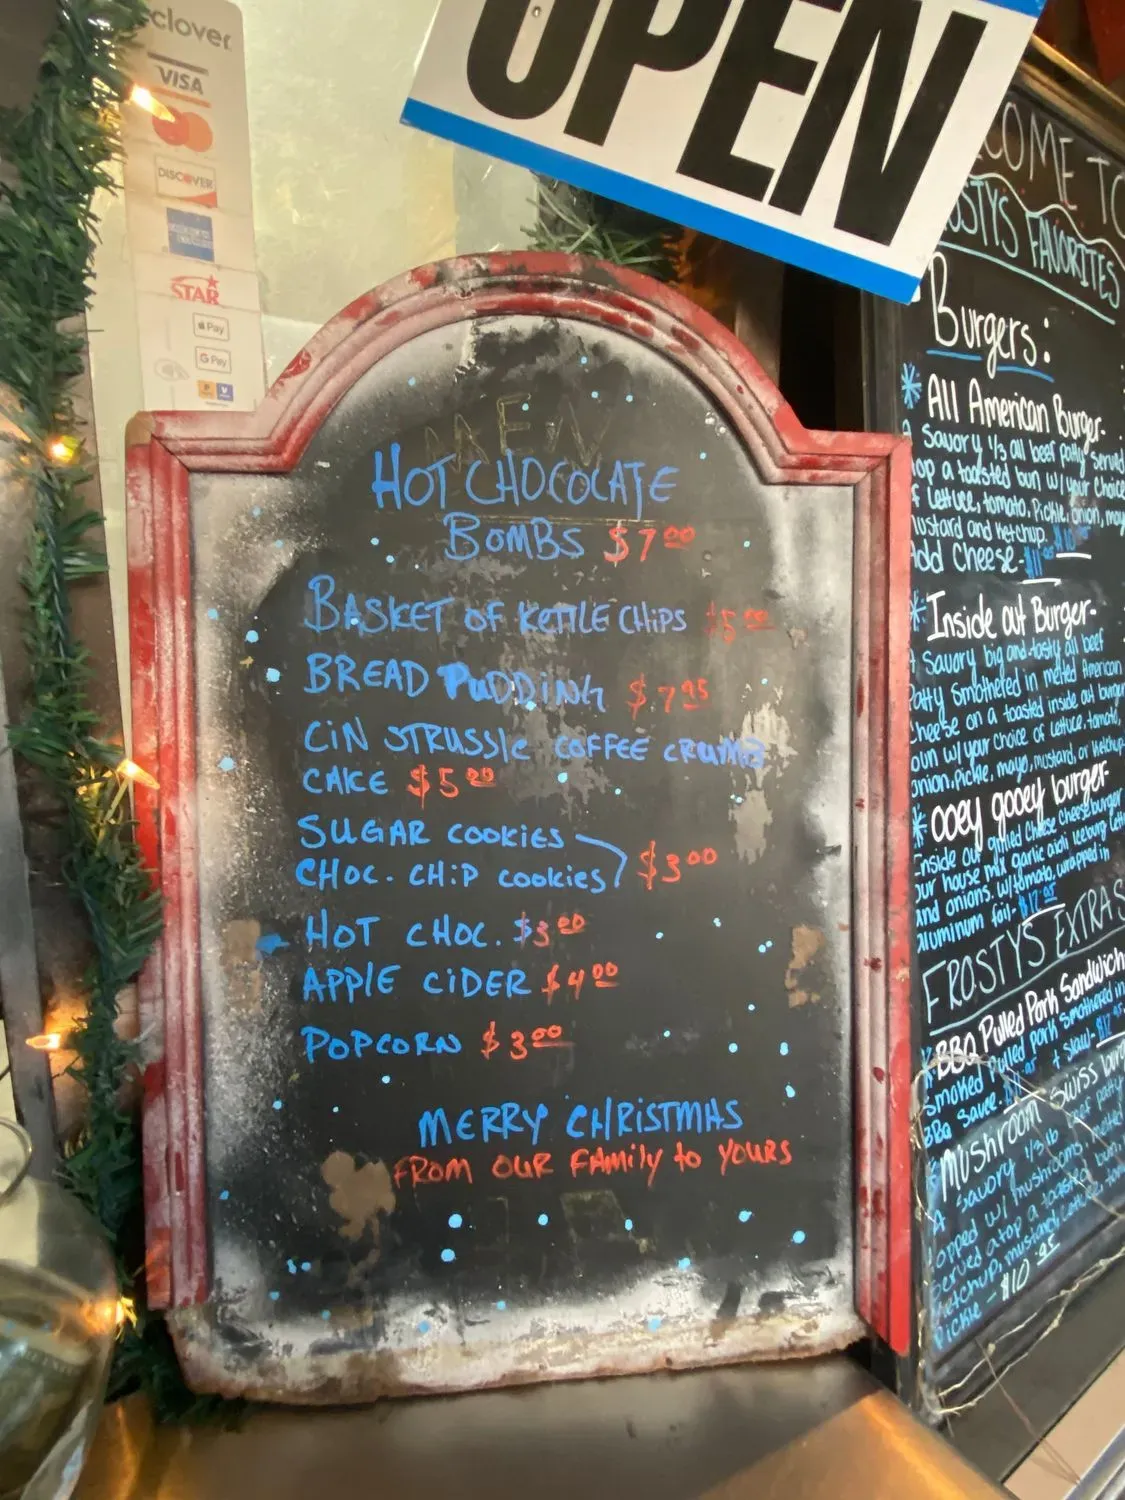 clover
VISA
DISCOVER
AMERICAN EXPRESS
STAR
Pay
G Pay
OPEN
MENU
HOT CHOCOLATE
BOMBS $7.00
BASKET OF KETTLE CHIPS $5.00
BREAD PUDDING $7.95
CIN STRUSSLE COFFEE CRUMB
CAKE $5.00
SUGAR COOKIES
CHOC. CHIP COOKIES $3.00
HOT CHOC. $3.00
APPLE CIDER $4.00
POPCORN $3.00
MERRY CHRISTMAS
FROM OUR FAMILY TO YOURS
COME TO
OSTYS FAVORITES
Burgers:
All American Burger-
A Savory 1/3 all beef patty served
top a toasted bun w/ your choice
of lettuce, tomato, Pickle, onion, mayo
mustard and ketchup.
Add Cheese-
Inside out Burger-
A Savory big and tasty all beef
Patty Smothered in melted American
cheese on a toasted inside out burger
bun w/ your choice of lettuce, tomato,
onion, pickle, mayo, mustard, or ketchup
ooey gooey burger-
Inside out grilled cheese cheeseburger
our house mix garlic aioli iceburg lett
and onions. w/ tomato, wrapped in
aluminum foil- $17.95
FROSTYS EXTRAS
BBQ Pulled Pork Sandwich
Smoked Pulled pork smothered in
BBQ Sauce + slaw-
Mushroom Swiss burg
A savory 1/3 lb beef patty
topped w/ mushrooms, melted
served atop a toasted bun,
ketchup, mustard, lettuce, tom
Pickle - $10.95